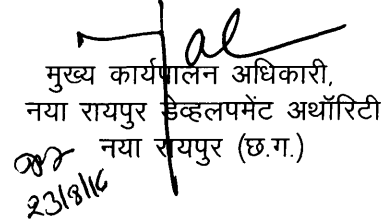 मुख्य कार्यपालन अधिकारी,
नया रायपुर डेव्हलपमेंट अथॉरिटी
नया रायपुर (छ.ग.)
23/8/16